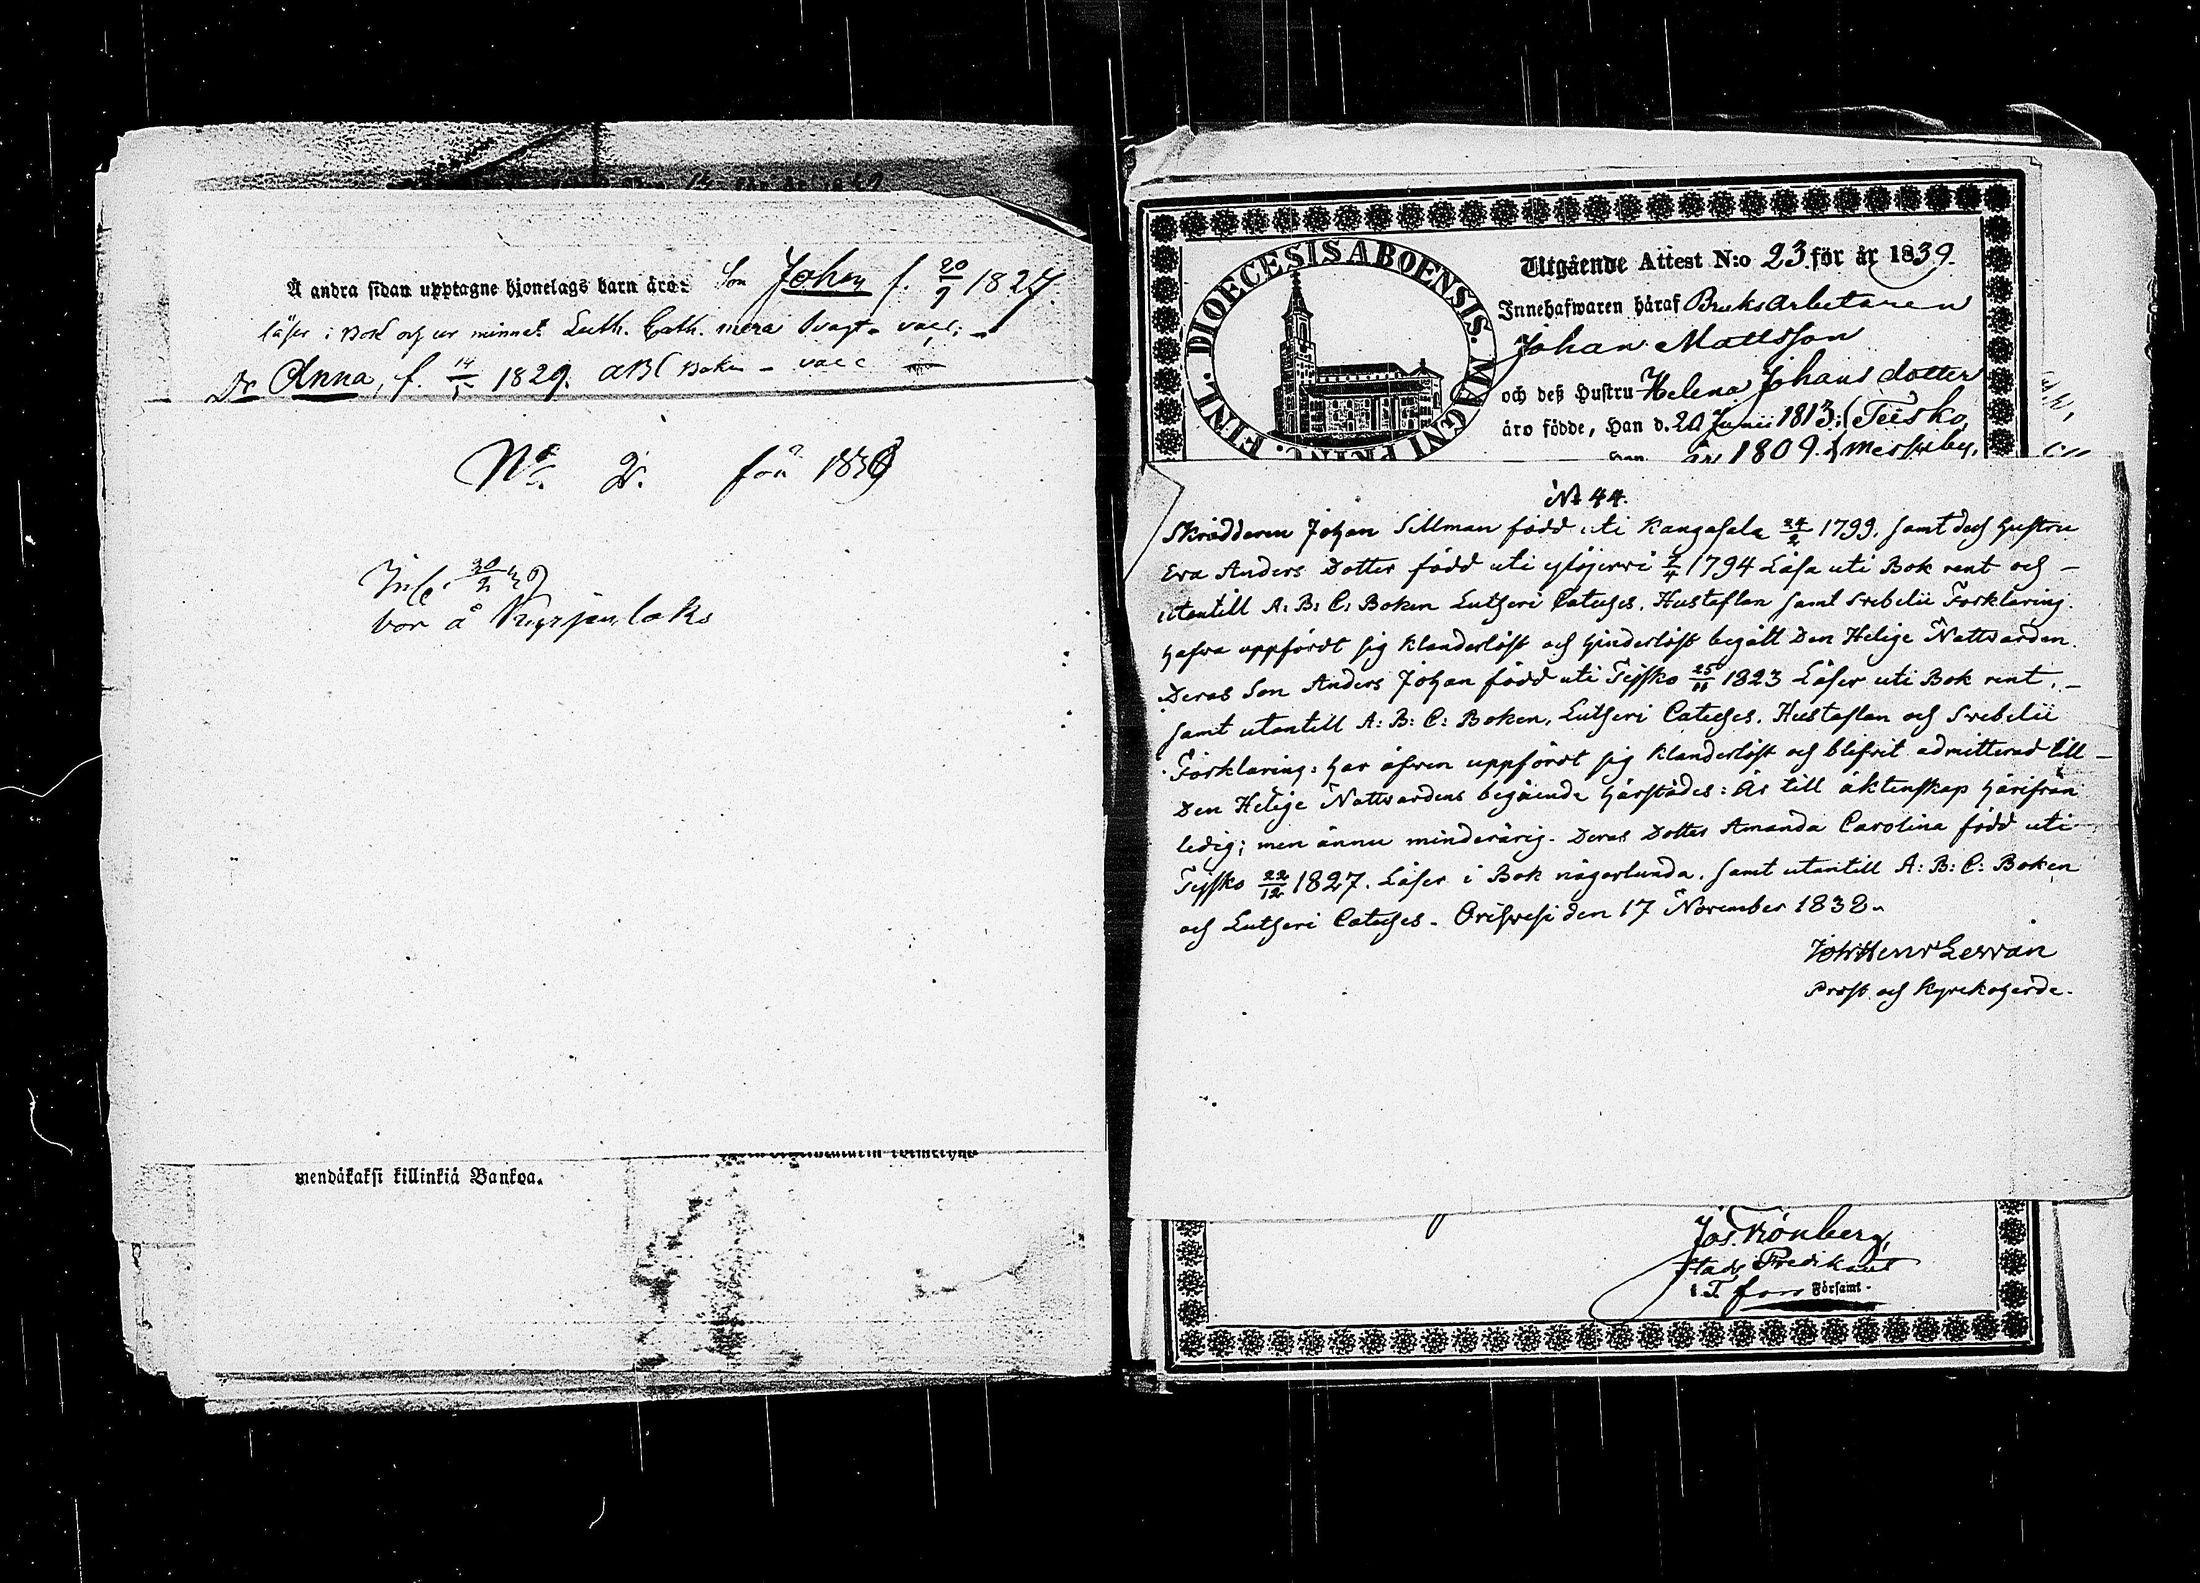 Å andra sidan upptagne hjonelags barn äro: Son Johan f. 20/9 1827.
läser i Bok och ur minnet Luth. Cath. mera svagt - vacc: -
Dr Anna, f. 14/5 1829. ABC Boken - vacc
No 2. för 1839
Inl. 30/2 39
bor å
mendäkaksi killinkiä Bankoa.
DIOECESIS ABOENSIS. MAGNI PRINC. FINL.
Utgående Attest N:o 23 för år 1839.
Innehafwaren häraf Bruksarbetaren
Johan Mattsson
och deß Hustru Helena Johans dotter
äro födde, Han d. 20 Junii 1813, (Teisko,
Hon år 1809. (Messuby,
No 44.
Skräddaren Johan Sillman född uti Kangasala 24/2 1799. samt dess Hustru
Eva Anders Dotter född uti Ylöjerwi 4/4 1794 Läsa uti Bok rent och -
utantill A: B: C: Boken Lutheri Cateches. Hustaflan samt Svebelii Förklaring.
Hafva uppfördt sig klanderlöst och hinderlöst begått Den Helige Nattvarden.
Deras Son Anders Johan född uti Tejsko 25/11 1823 Läser uti Bok rent. -
samt utantill A: B: C: Boken, Lutheri Cateches. Hustaflan och Svebelii
Förklaring: har äfven uppfördt sig klanderlöst och blifvit admitterad till -
Den Helige Nattvardens begående härstädes: Är till äktenskap härifrån
ledig; men ännu minderårig. Deras Dotter Amanda Carolina född uti
Tejsko 22/12 1827. Läser i Bok någorlunda. samt utantill A: B: C: Boken
och Lutheri Cateches. Orihvesi den 17 November 1838.
Joh: Henr Lerrán
Prost och Kyrckoherde.
Jos. Grönberg,
Stads Predikant
i T fors Församl.